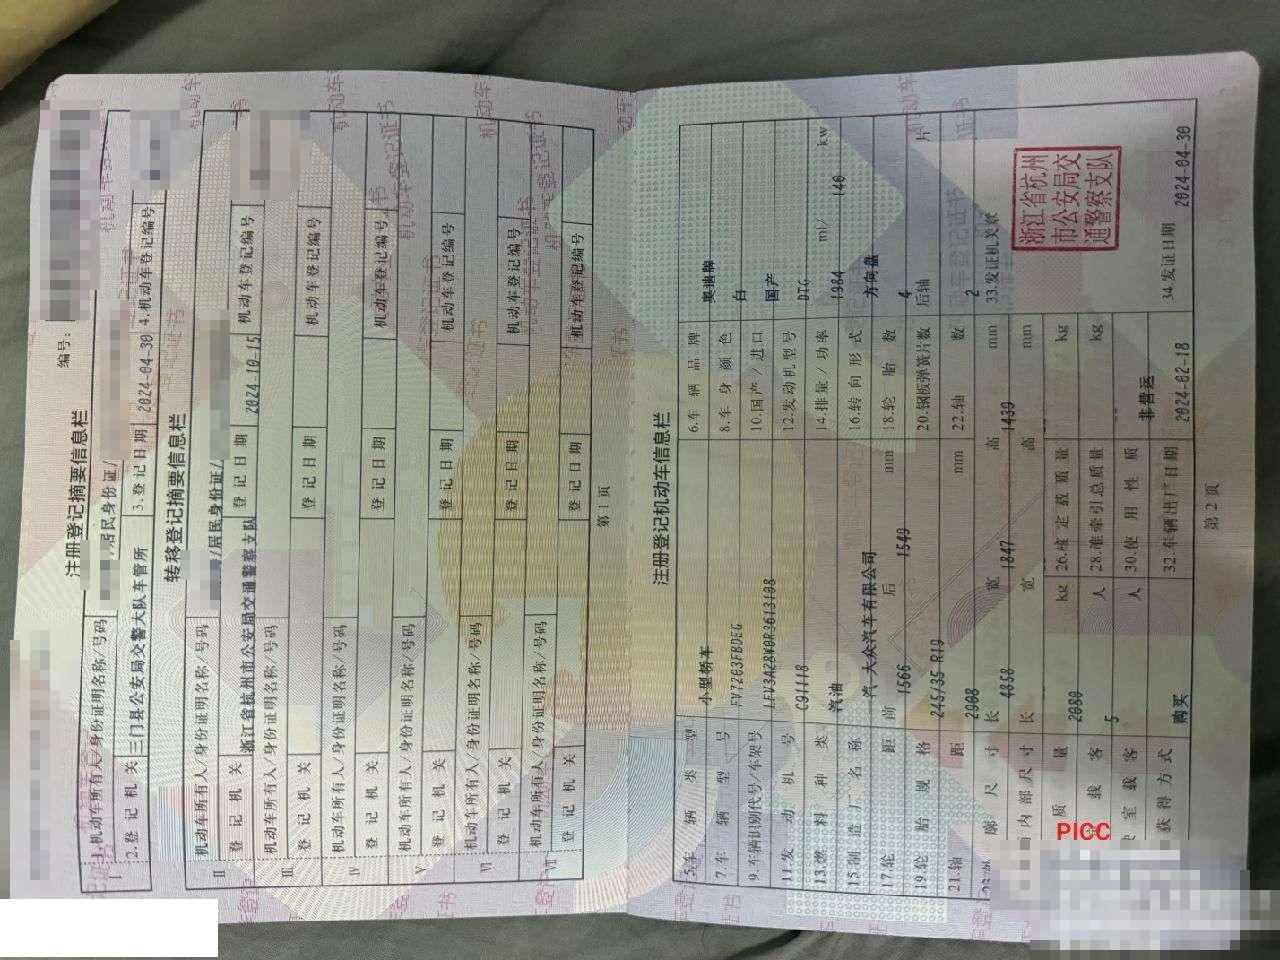 编号:
注册登记摘要信息栏
I 1.机动车所有人/身份证明名称/号码 /居民身份证/
2.登记机关 三门县公安局交警大队车管所 3.登记日期 2024-04-30 4.机动车登记编号
转移登记摘要信息栏
II 机动车所有人/身份证明名称/号码 /居民身份证/
登记机关 浙江省杭州市公安局交通警察支队 登记日期 2024-10-15 机动车登记编号
III 机动车所有人/身份证明名称/号码
登记机关 登记日期 机动车登记编号
IV 机动车所有人/身份证明名称/号码
登记机关 登记日期 机动车登记编号
V 机动车所有人/身份证明名称/号码
登记机关 登记日期 机动车登记编号
VI 机动车所有人/身份证明名称/号码
登记机关 登记日期 机动车登记编号
VII 机动车所有人/身份证明名称/号码
登记机关 登记日期 机动车登记编号
第 1 页
注册登记机动车信息栏
5.车辆类型 小型轿车 6.车辆品牌 奥迪牌
7.车辆型号 FV7203FBDEG 8.车身颜色 白
9.车辆识别代号/车架号 LFV3A28W0R3613108 10.国产/进口 国产
11.发动机号 C91118 12.发动机型号 DTG
13.燃料种类 汽油 14.排量/功率 1984 ml/ 140 kw
15.制造厂名称 一汽-大众汽车有限公司 16.转向形式 方向盘
17.轮距 前 1566 后 1549 mm 18.轮胎数 4
19.轮胎规格 245/35 R19 20.钢板弹簧片数 后轴 片
21.轴距 2908 mm 22.轴数 2
廓尺寸 长 4858 宽 1847 高 1439 mm 33.发证机关章
内部尺寸 长 宽 高 mm
浙江省杭州
市公安局交
通警察支队
质量 2080 kg 26.核定载质量 kg
载客 5 人 28.准牵引总质量 kg
室载客 人 30.使用性质 非营运
获得方式 购买 32.车辆出厂日期 2024-02-18 34.发证日期 2024-04-30
第 2 页
PICC